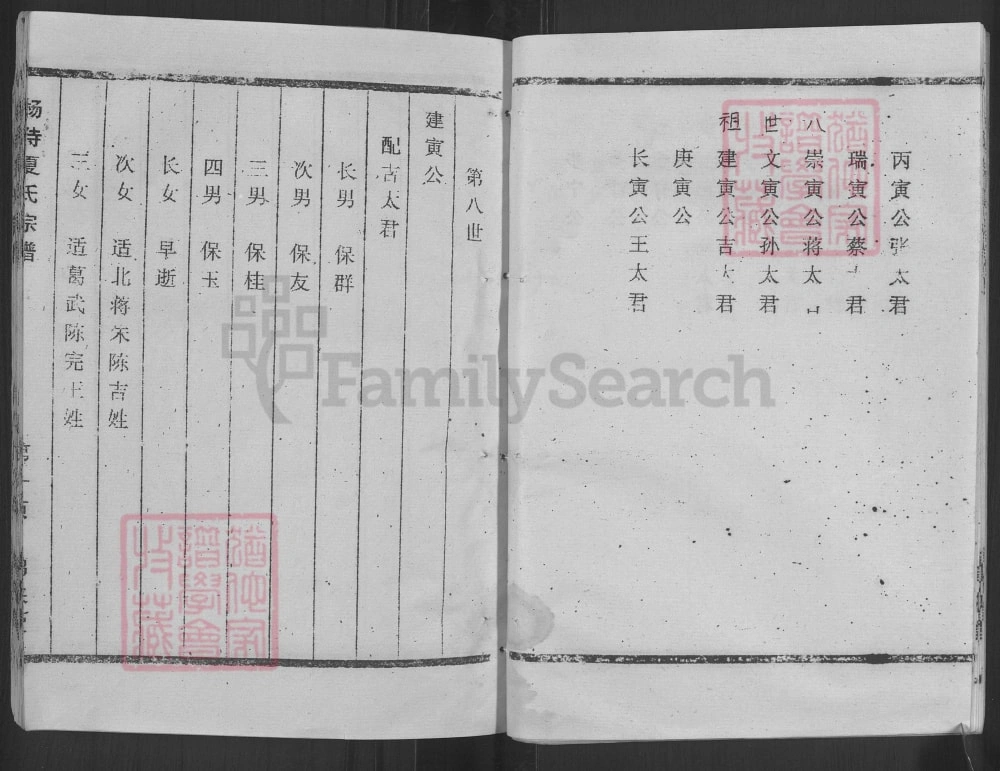 丙寅公张太君
瑞寅公蔡太君
八崇寅公蒋太
世文寅公孙太君
祖建寅公吉太君
庚寅公
长寅公王太君
第八世
建寅公
配吉太君
长男 保群
次男 保友
三男 保桂
四男 保玉
长女 早逝
次女 适北蒋宋陈吉姓
三女 适葛武陈完王姓
夏氏宗谱
FamilySearch